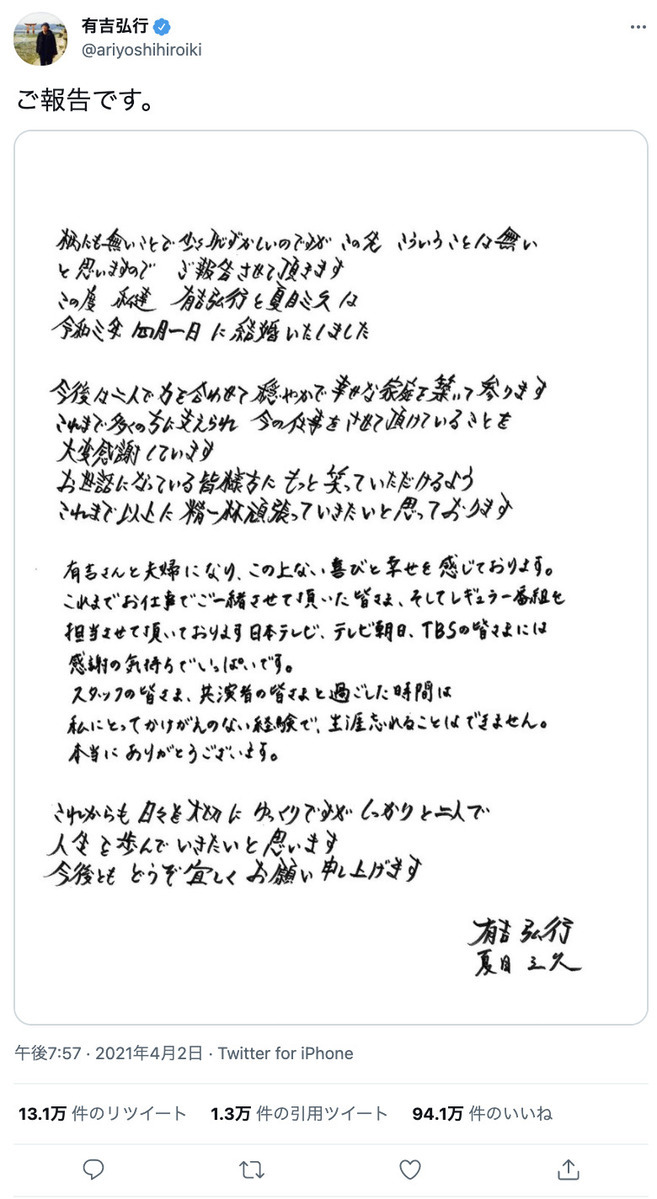 有吉弘行
@ariyoshihiroiki
ご報告です。
柄にも無いことで少々恥ずかしいのですが この先 こういうことは無い
と思いますので ご報告させて頂きます
この度 私達 有吉弘行と夏目三久は
令和三年 四月一日 に結婚いたしました
今後は二人で力を合わせて穏やかで幸せな家庭を築いて参ります
これまで多くの方に支えられ 今の仕事をさせて頂けていることを
大変感謝しています
お世話になっている皆様方に もっと笑っていただけるよう
これまで以上に精一杯頑張っていきたいと思っております
有吉さんと夫婦になり、この上ない喜びと幸せを感じております。
これまでお仕事でご一緒させて頂いた皆さま、そしてレギュラー番組を
担当させて頂いております日本テレビ、テレビ朝日、TBSの皆さまには
感謝の気持ちでいっぱいです。
スタッフの皆さま、共演者の皆さまと過ごした時間は
私にとってかけがえのない経験で、生涯忘れることはできません。
本当にありがとうございます。
これからも 日々を大切に ゆっくりですが しっかりと二人で
人生を歩んでいきたいと思います
今後とも どうぞ宜しく お願い申し上げます
有吉弘行
夏目三久
午後7:57 · 2021年4月2日 · Twitter for iPhone
13.1万 件のリツイート 1.3万 件の引用ツイート 94.1万 件のいいね